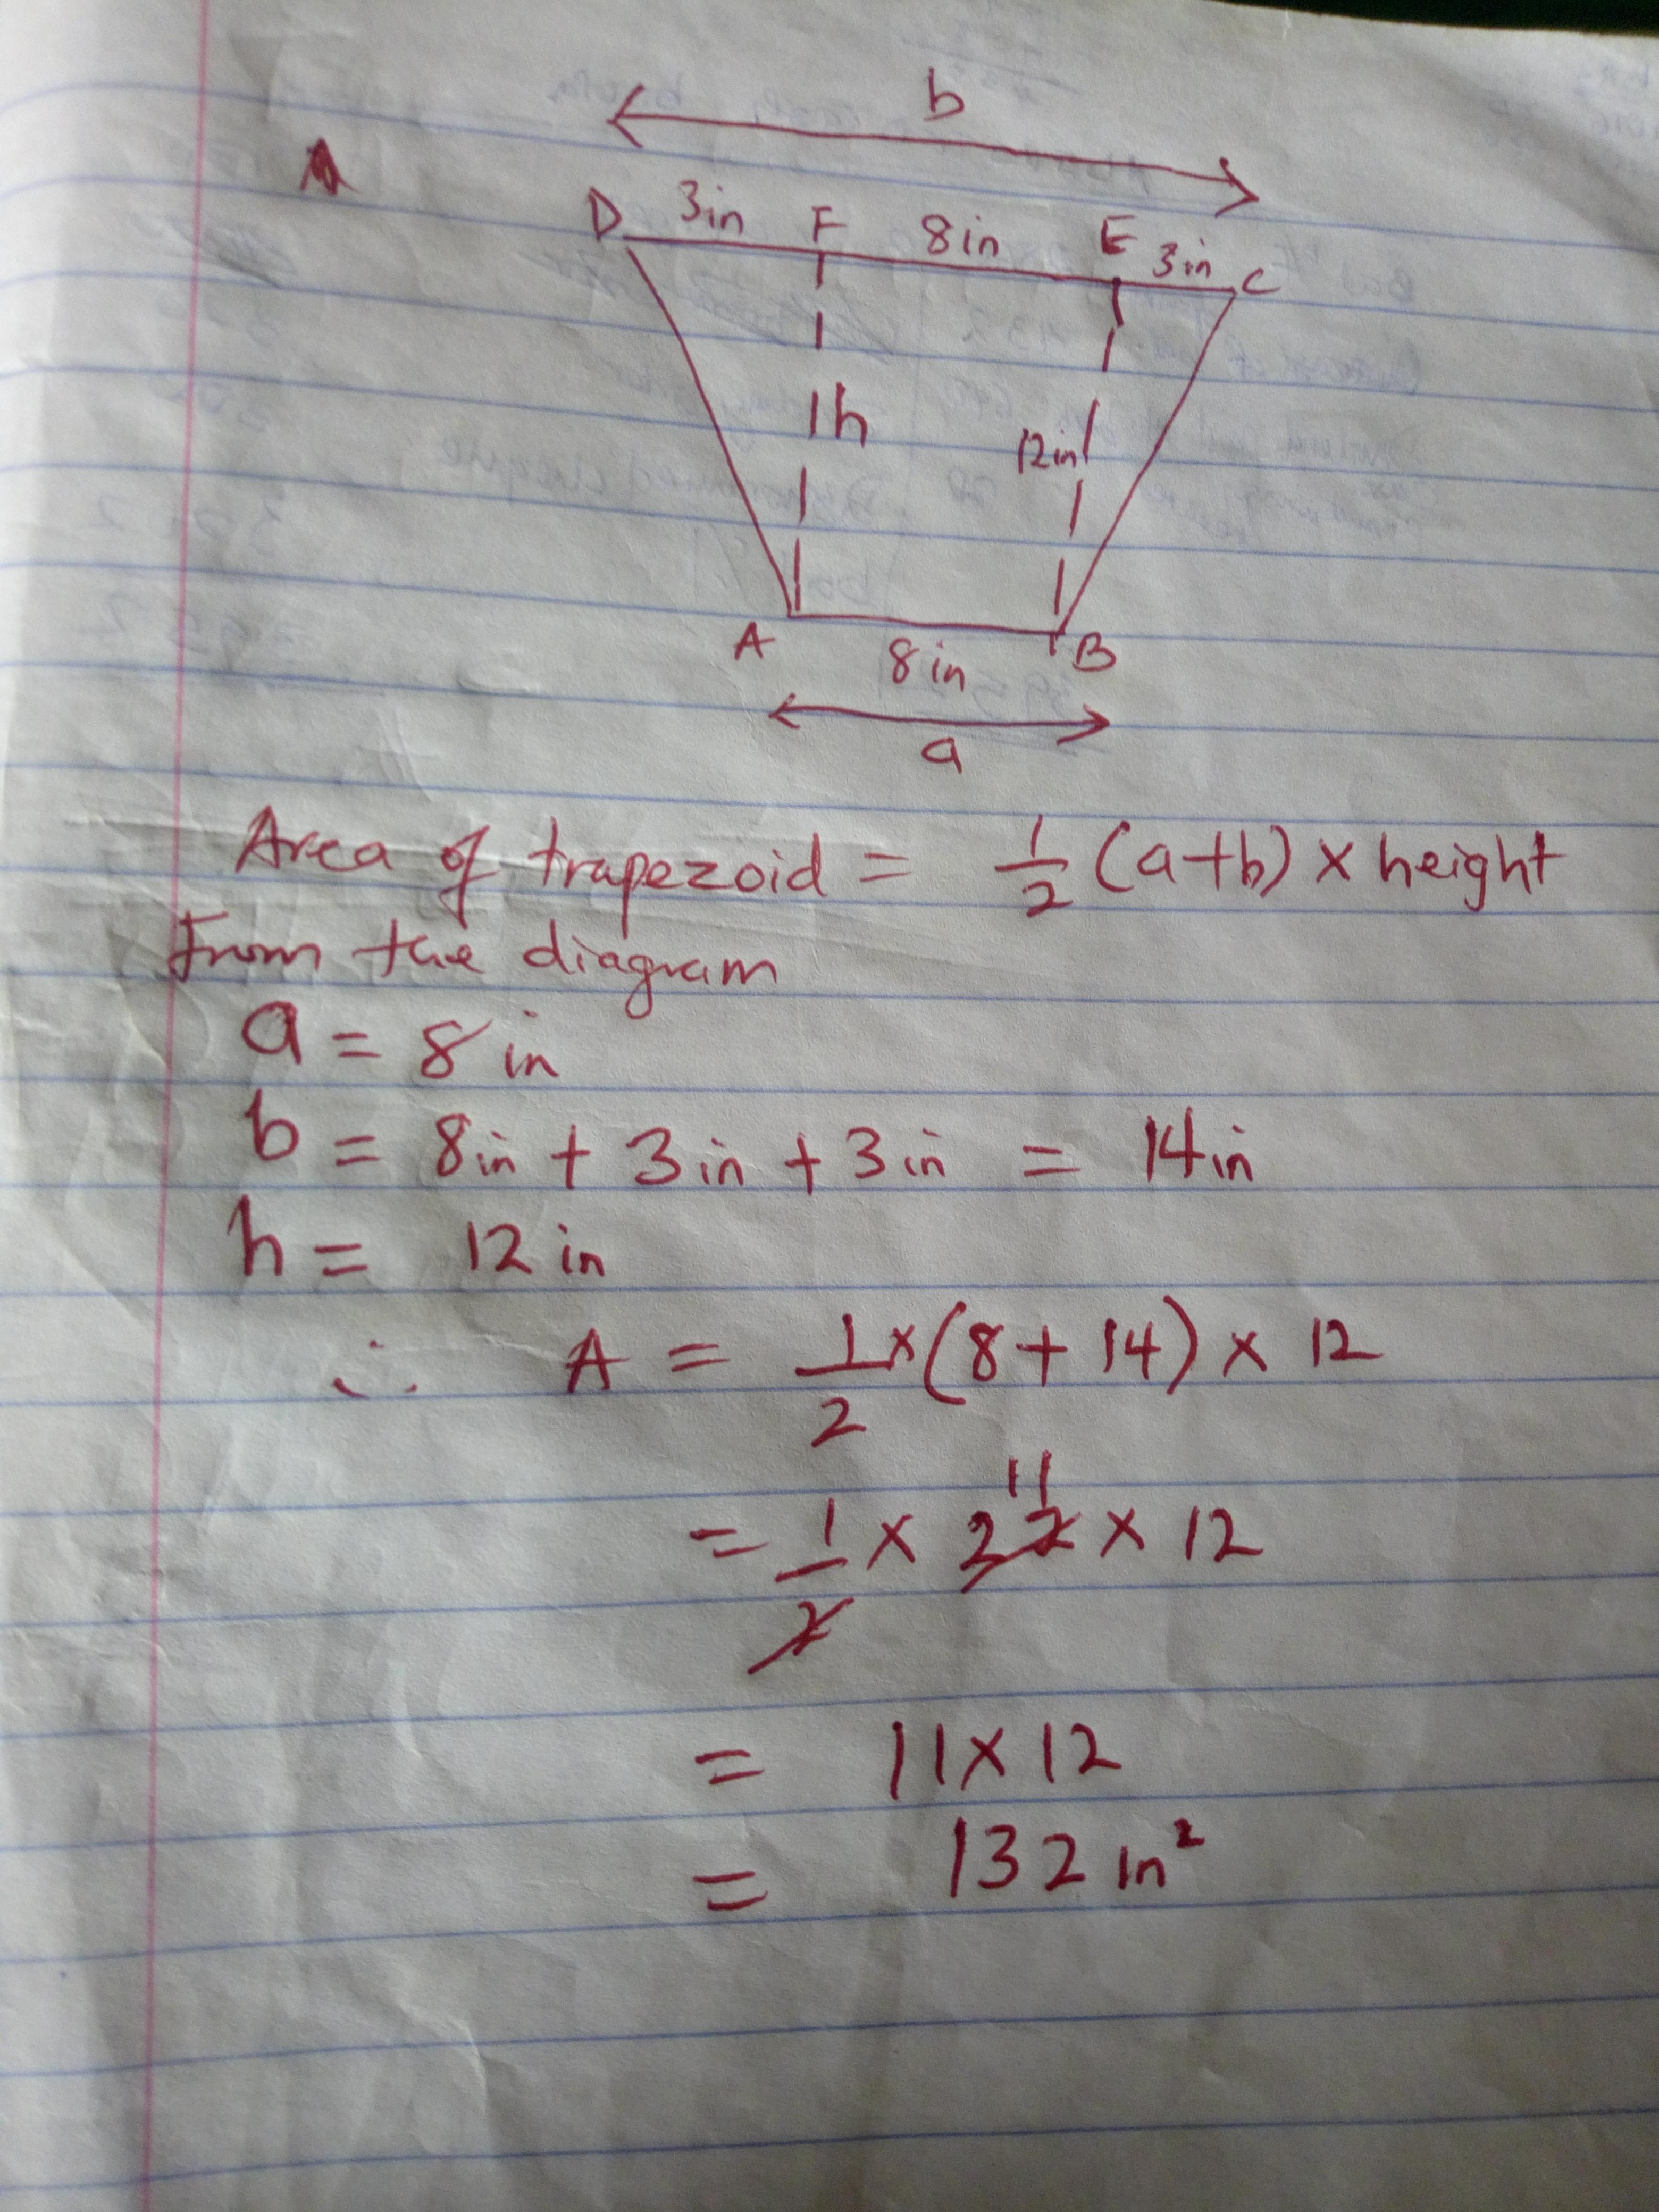 b
D 3in F 8in E 3in C
h
12in
A 8in B
a
Area of trapezoid = 1/2 (a+b) × height
From the diagram
a = 8 in
b = 8in + 3in + 3in = 14in
h = 12 in
∴ A = 1/2 × (8 + 14) × 12
= 1/2 × 22 11 × 12
= 11 × 12
= 132 in²